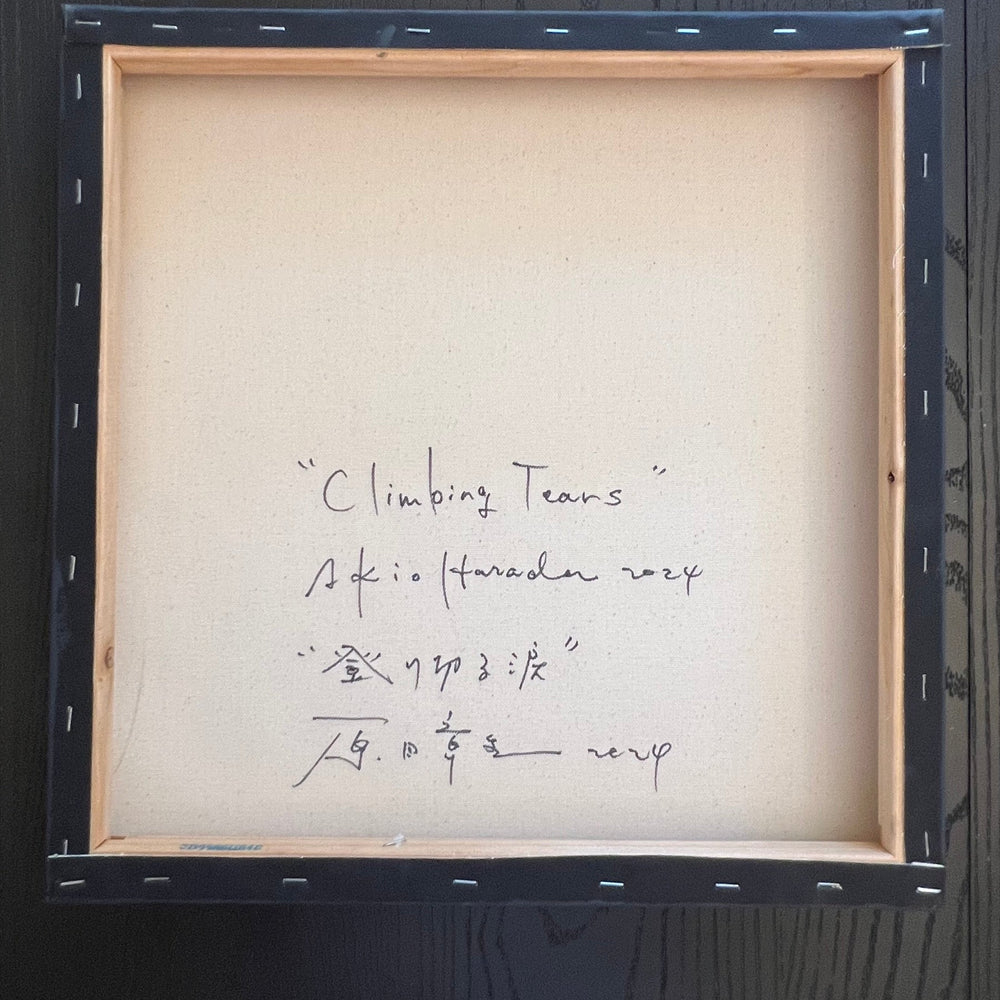 "Climbing Tears"
Akio Harada 2024
"登り切る涙"
原田章生 2024